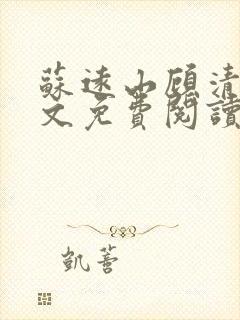 蘇遠山顧清
文免費閱讀
凱薔